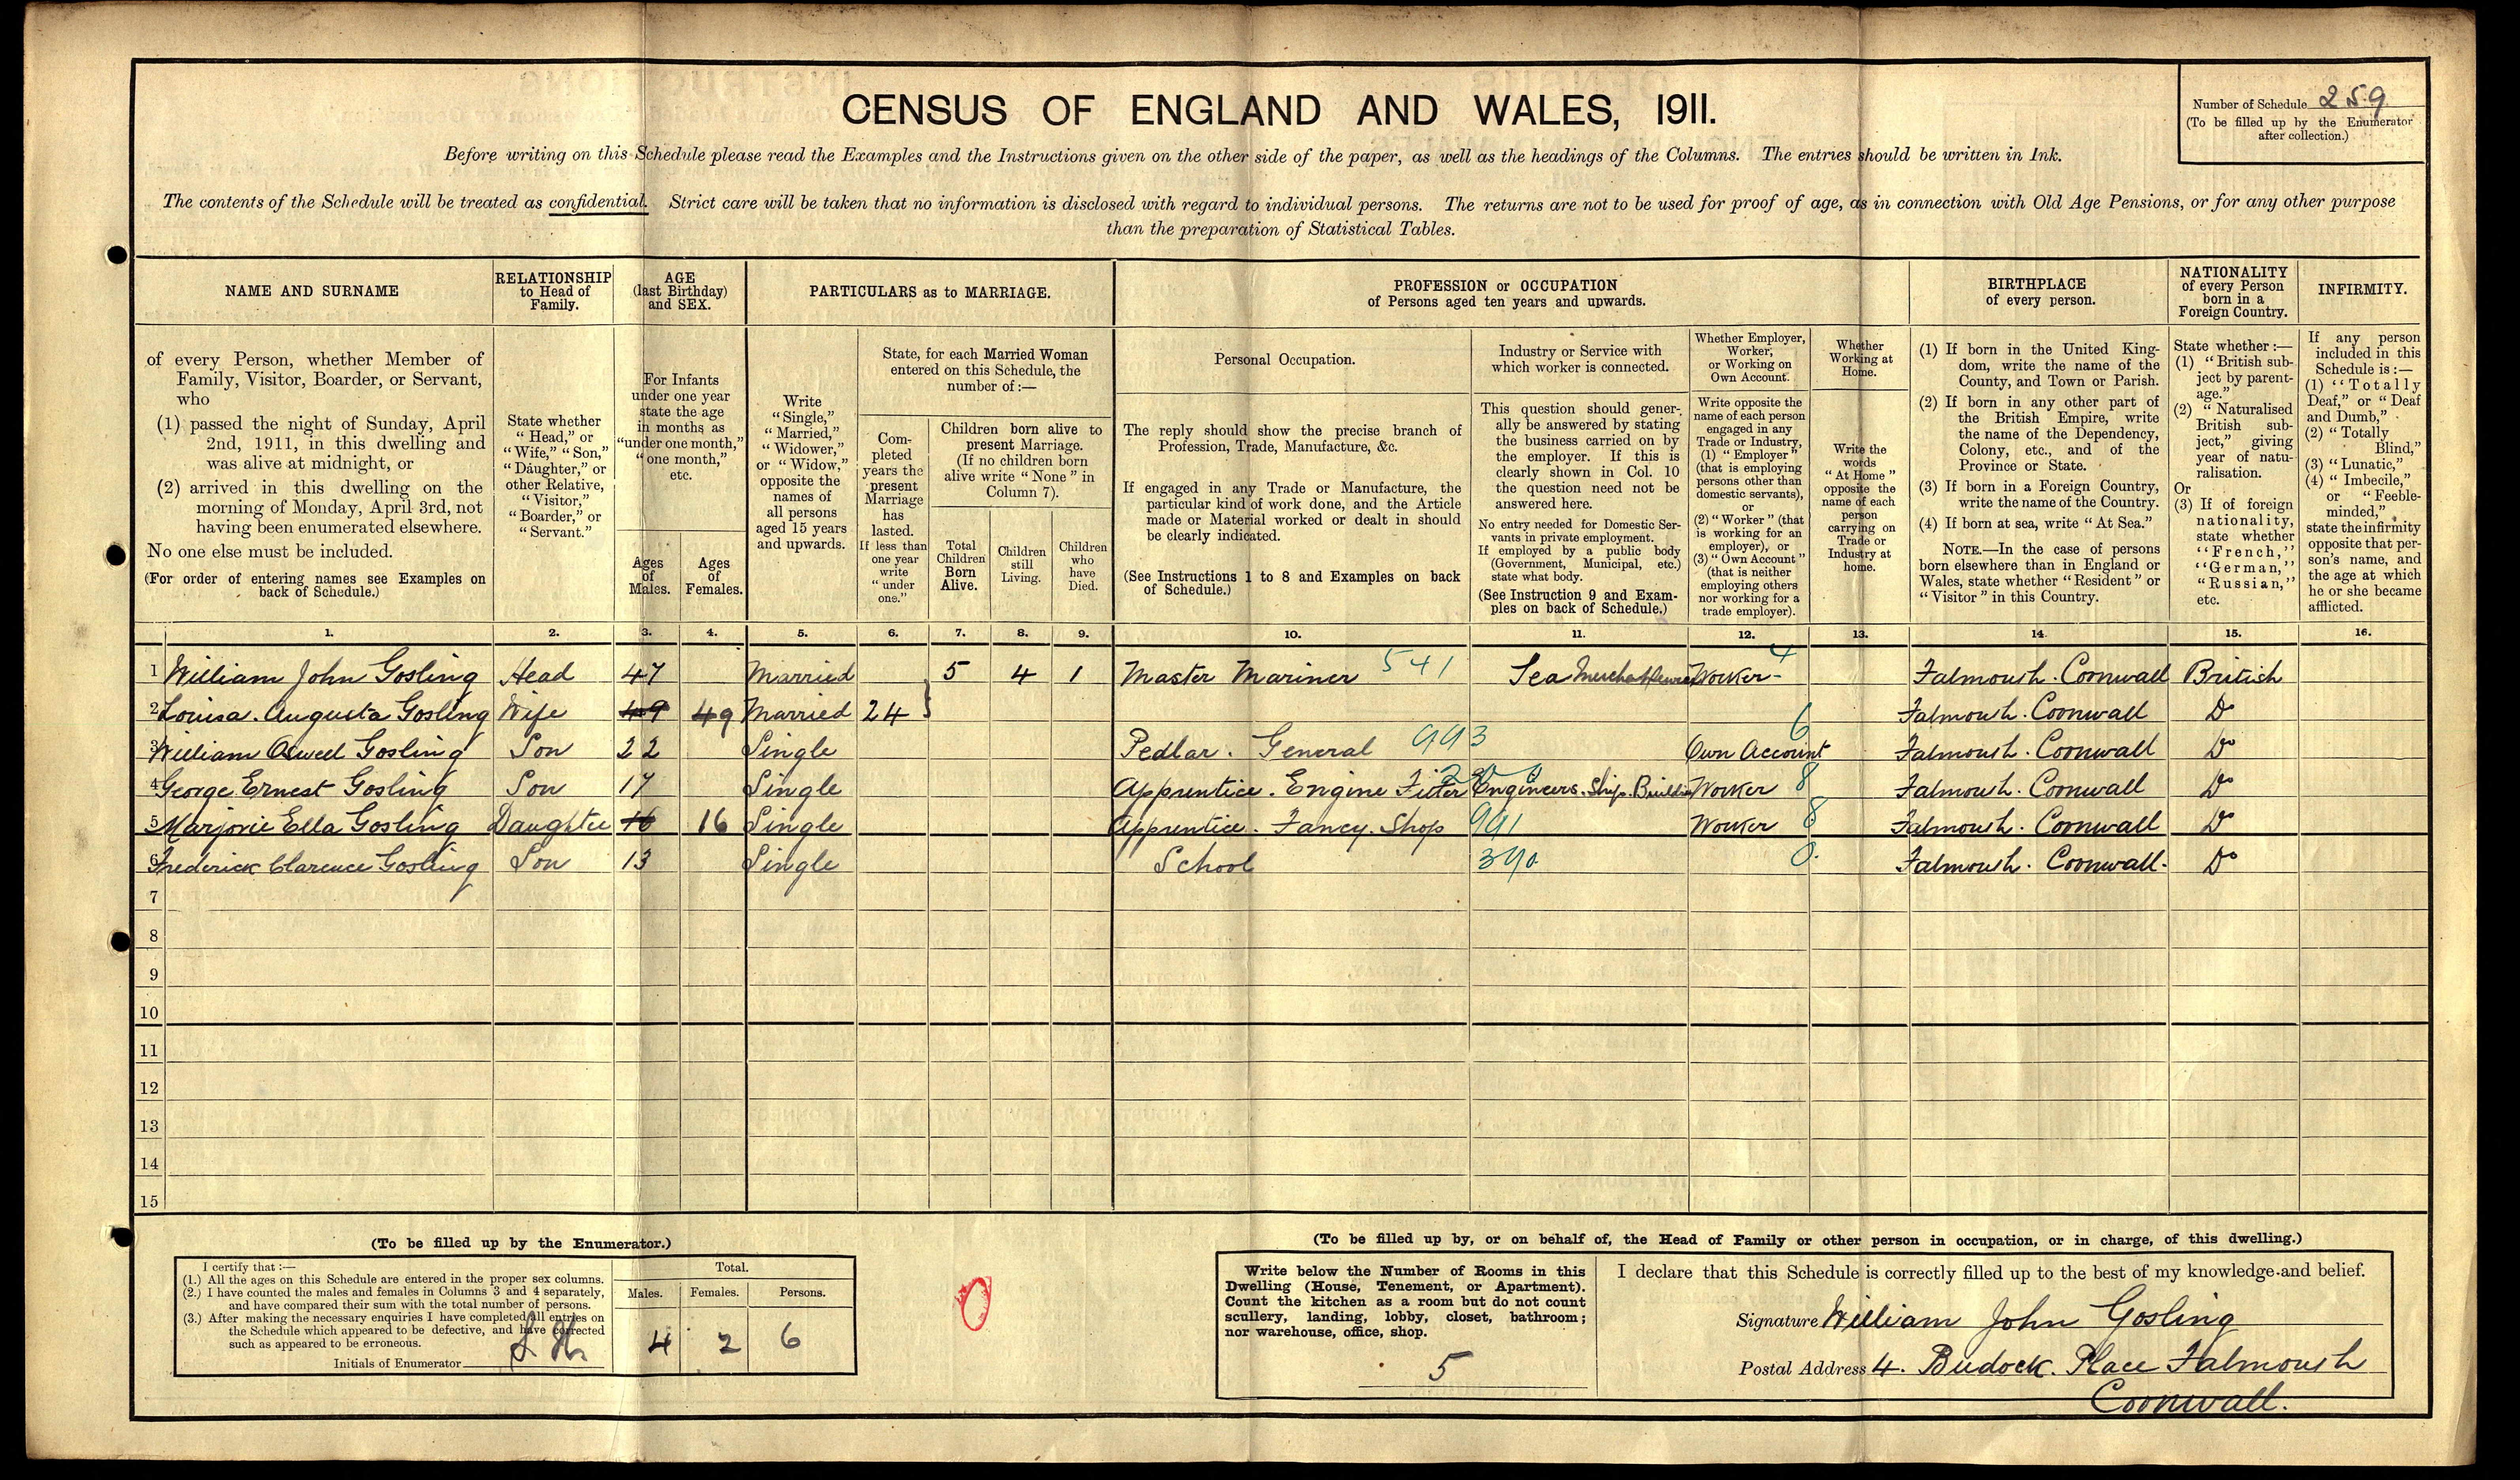 CENSUS OF ENGLAND AND WALES, 1911.
Number of Schedule 259
(To be filled up by the Enumerator
after collection.)
Before writing on this Schedule please read the Examples and the Instructions given on the other side of the paper, as well as the headings of the Columns. The entries should be written in Ink.
The contents of the Schedule will be treated as confidential. Strict care will be taken that no information is disclosed with regard to individual persons. The returns are not to be used for proof of age, as in connection with Old Age Pensions, or for any other purpose
than the preparation of Statistical Tables.
NAME AND SURNAME
of every Person, whether Member of
Family, Visitor, Boarder, or Servant,
who
(1) passed the night of Sunday, April
2nd, 1911, in this dwelling and
was alive at midnight, or
(2) arrived in this dwelling on the
morning of Monday, April 3rd, not
having been enumerated elsewhere.
No one else must be included.
(For order of entering names see Examples on
back of Schedule.)
RELATIONSHIP
to Head of
Family.
State whether
"Head," or
"Wife," "Son,"
"Daughter," or
other Relative,
"Visitor,"
"Boarder," or
"Servant."
AGE
(last Birthday)
and SEX.
For Infants
under one year
state the age
in months as
"under one month,"
"one month,"
etc.
Ages
of
Males.
Ages
of
Females.
PARTICULARS as to MARRIAGE.
Write
"Single,"
"Married,"
"Widower,"
or "Widow,"
opposite the
names of
all persons
aged 15 years
and upwards.
State, for each Married Woman
entered on this Schedule, the
number of:—
Com-
pleted
years the
present
Marriage
has
lasted.
If less than
one year
write
"under
one."
Children born alive to
present Marriage.
(If no children born
alive write "None" in
Column 7).
Total
Children
Born
Alive.
Children
still
Living.
Children
who
have
Died.
PROFESSION or OCCUPATION
of Persons aged ten years and upwards.
Personal Occupation.
The reply should show the precise branch of
Profession, Trade, Manufacture, &c.
If engaged in any Trade or Manufacture, the
particular kind of work done, and the Article
made or Material worked or dealt in should
be clearly indicated.
(See Instructions 1 to 8 and Examples on back
of Schedule.)
Industry or Service with
which worker is connected.
This question should gener-
ally be answered by stating
the business carried on by
the employer. If this is
clearly shown in Col. 10
the question need not be
answered here.
No entry needed for Domestic Ser-
vants in private employment.
If employed by a public body
(Government, Municipal, etc.)
state what body.
(See Instruction 9 and Exam-
ples on back of Schedule.)
Whether Employer,
Worker,
or Working on
Own Account.
Write opposite the
name of each person
engaged in any
Trade or Industry,
(1) "Employer"
(that is employing
persons other than
domestic servants),
or
(2) "Worker" (that
is working for an
employer), or
(3) "Own Account"
(that is neither
employing others
nor working for a
trade employer).
Whether
Working at
Home.
Write the
words
"At Home"
opposite the
name of each
person
carrying on
Trade or
Industry at
home.
BIRTHPLACE
of every person.
(1) If born in the United King-
dom, write the name of the
County, and Town or Parish.
(2) If born in any other part of
the British Empire, write
the name of the Dependency,
Colony, etc., and of the
Province or State.
(3) If born in a Foreign Country,
write the name of the Country.
(4) If born at sea, write "At Sea."
NOTE.—In the case of persons
born elsewhere than in England or
Wales, state whether "Resident" or
"Visitor" in this Country.
NATIONALITY
of every Person
born in a
Foreign Country.
State whether:—
(1) "British sub-
ject by parent-
age."
(2) "Naturalised
British sub-
ject," giving
year of natu-
ralisation.
Or
(3) If of foreign
nationality,
state whether
"French,"
"German,"
"Russian,"
etc.
INFIRMITY.
If any person
included in this
Schedule is:—
(1) "Totally
Deaf," or "Deaf
and Dumb,"
(2) "Totally
Blind,"
(3) "Lunatic,"
(4) "Imbecile,"
or "Feeble-
minded,"
state the infirmity
opposite that per-
son's name, and
the age at which
he or she became
afflicted.
1. 2. 3. 4. 5. 6. 7. 8. 9. 10. 11. 12. 13. 14. 15. 16.
1 William John Gosling Head 47 Married 5 4 1 Master Mariner 541 Sea Worker 4 Falmouth. Cornwall British
2 Louisa. Augusta Gosling Wife 49 49 Married 24 Falmouth. Cornwall Do
3 William Gosling Son 22 Single Pedlar. General 993 Own Account 6 Falmouth. Cornwall Do
4 George Ernest Gosling Son 17 Single Apprentice. Engine Fitter Engineers. Ship. Worker 8 Falmouth. Cornwall Do
5 Marjorie Ella Gosling Daughter 16 16 Single Apprentice. Fancy. Shop 991 Worker 8 Falmouth. Cornwall Do
6 Frederick Clarence Gosling Son 13 Single School 390 0 Falmouth. Cornwall. Do
7
8
9
10
11
12
13
14
15
(To be filled up by the Enumerator.)
I certify that:—
(1.) All the ages on this Schedule are entered in the proper sex columns.
(2.) I have counted the males and females in Columns 3 and 4 separately,
and have compared their sum with the total number of persons.
(3.) After making the necessary enquiries I have completed all entries on
the Schedule which appeared to be defective, and have corrected
such as appeared to be erroneous.
Initials of Enumerator
Total.
Males. Females. Persons.
4 2 6
0
(To be filled up by, or on behalf of, the Head of Family or other person in occupation, or in charge, of this dwelling.)
Write below the Number of Rooms in this
Dwelling (House, Tenement, or Apartment).
Count the kitchen as a room but do not count
scullery, landing, lobby, closet, bathroom;
nor warehouse, office, shop.
5
I declare that this Schedule is correctly filled up to the best of my knowledge and belief.
Signature William John Gosling
Postal Address 4. Budock. Place Falmouth
Cornwall.